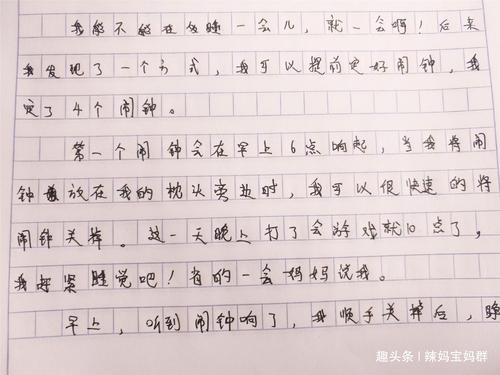 我能不能在多睡一会儿，就一会啊！后来
我发现了一个方式，我可以提前定好闹钟，我
定了4个闹钟。
第一个闹钟会在早上6点响起，当我将闹
钟放在我的枕头旁边时，我可以很快速的将
闹钟关掉。这一天晚上打了会游戏就10点了，
我赶紧睡觉吧！省的一会妈妈说我。
早上，听到闹钟响了，我顺手关掉后，睁
趣头条 | 辣妈宝妈群